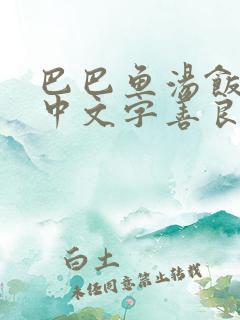 巴巴鱼汤飯
中文字善良
白土
未经同意禁止转载